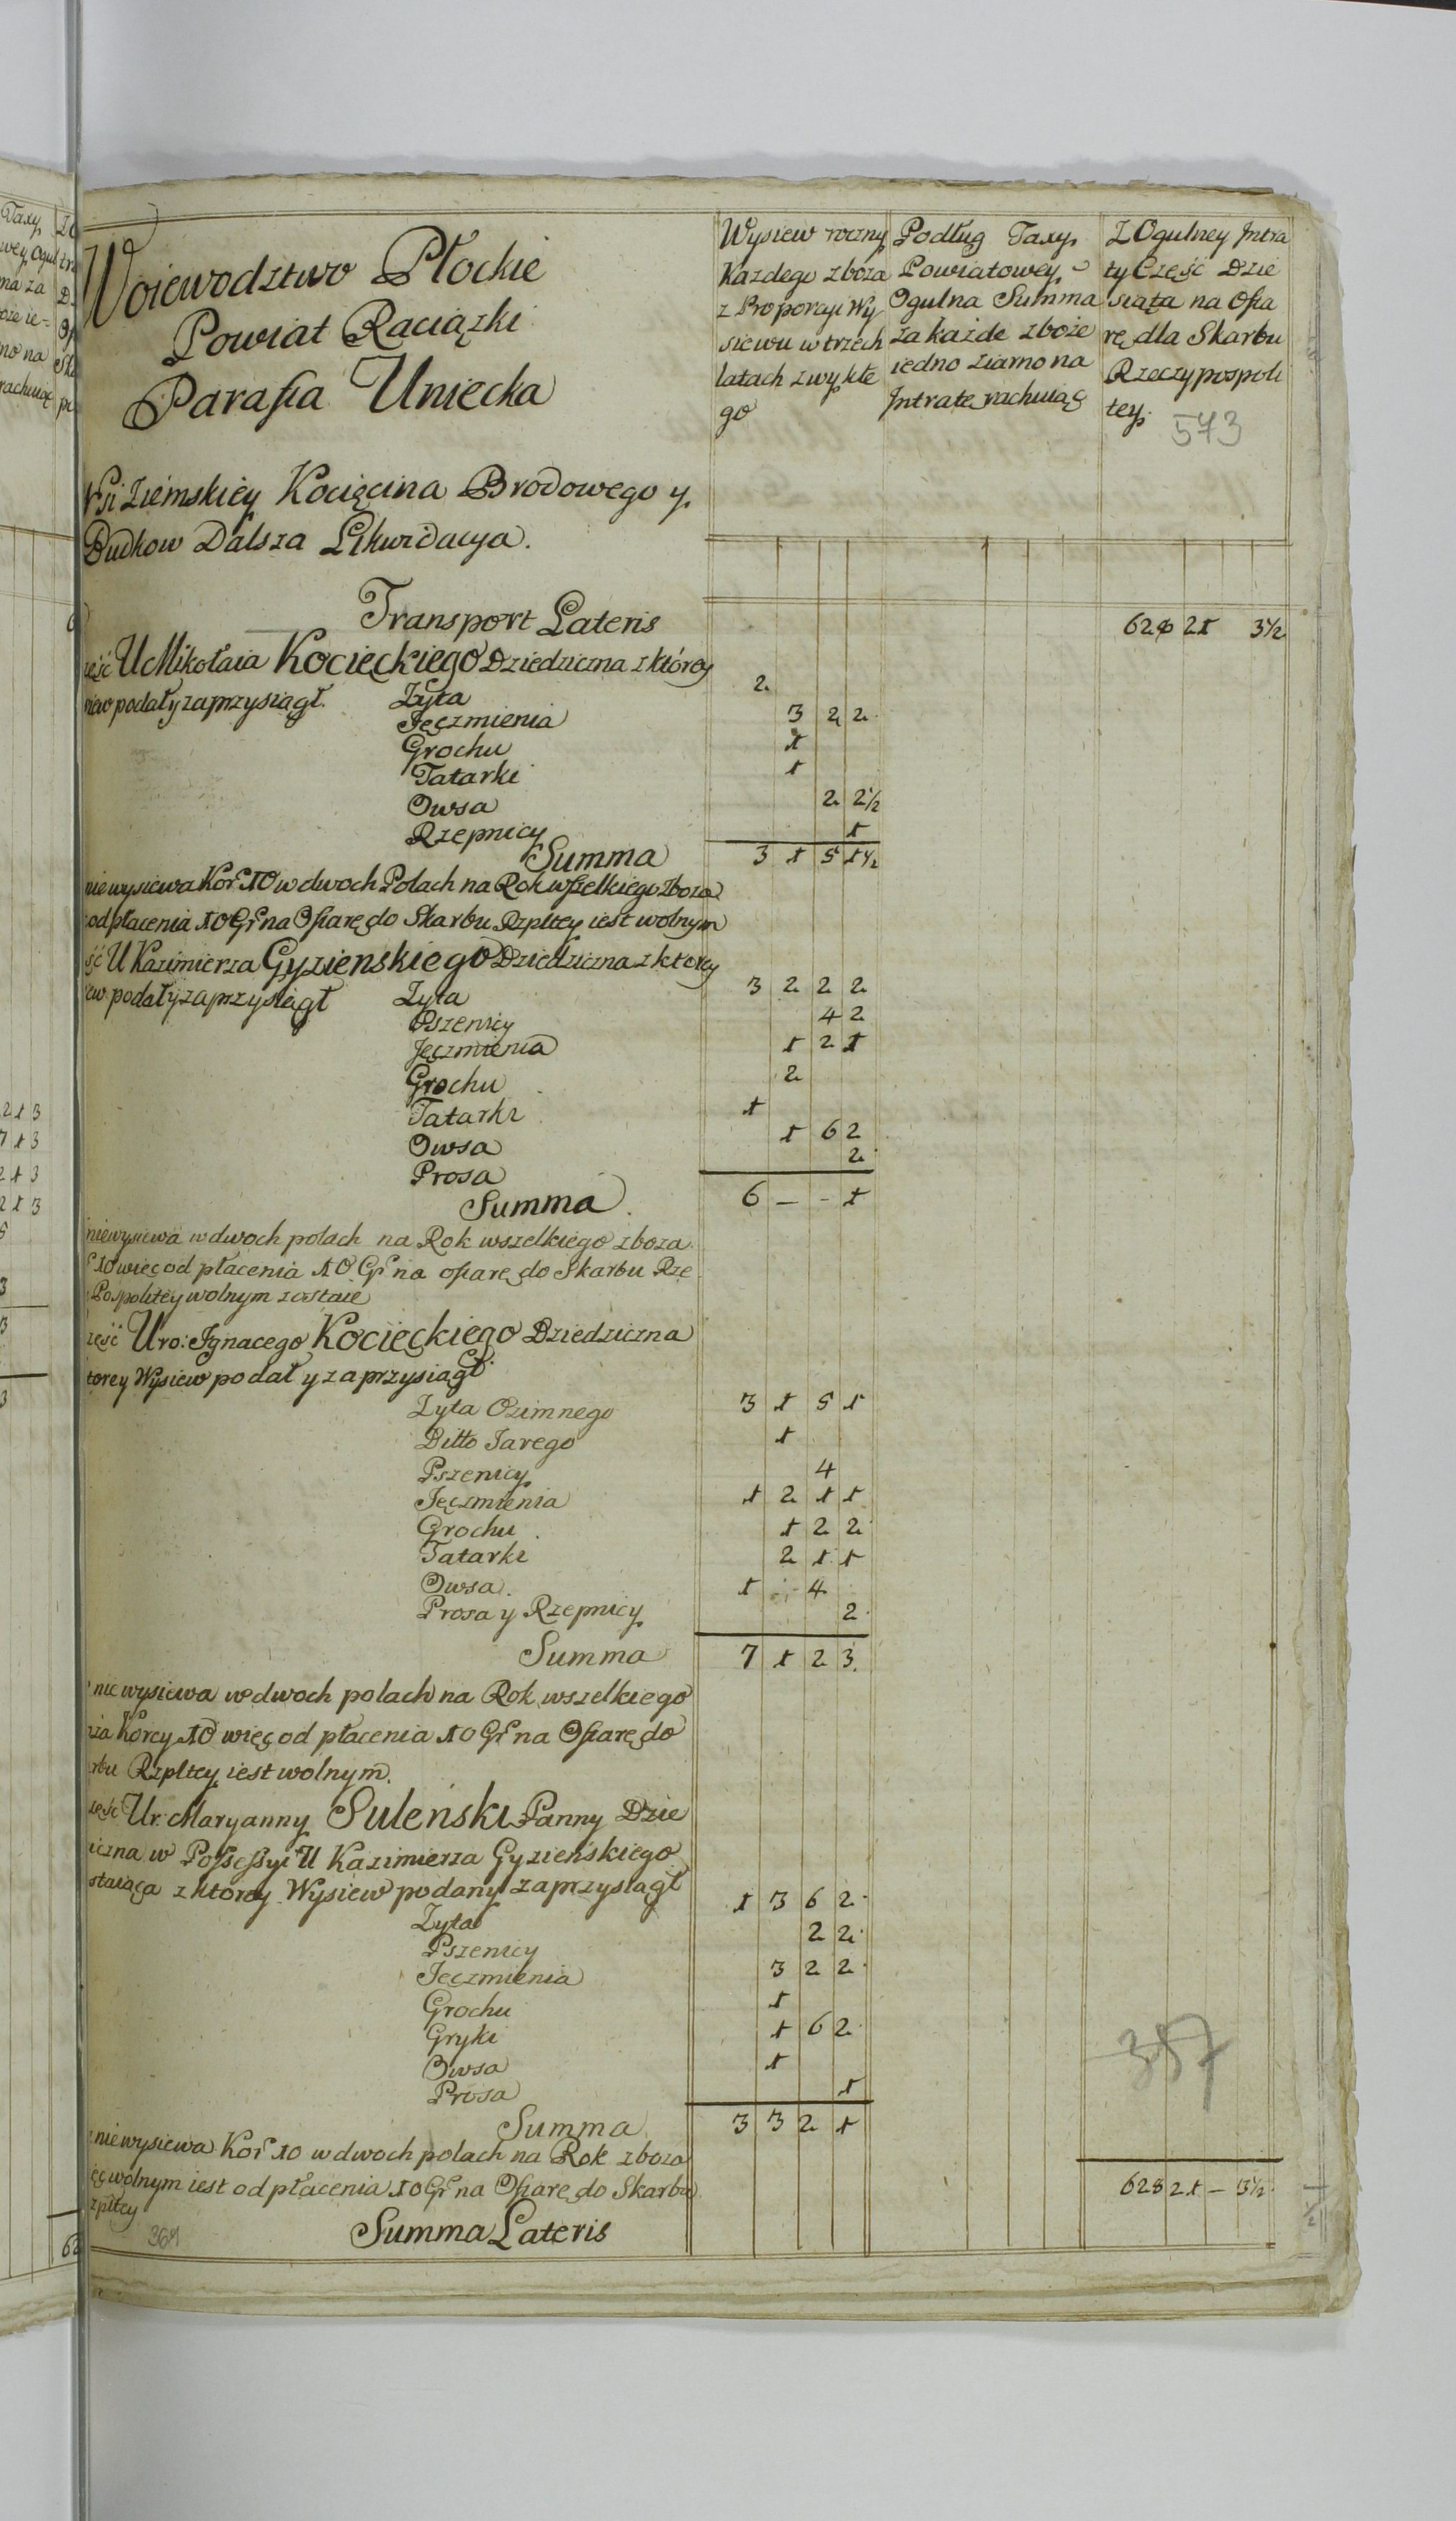 Woiewodztwo Płockie
Powiat Raciązki
Parafia Uniecka
Wysiew roczny
Kazdego zboza
z Proporcyi Wy
siewu w trzech
latach zwykłe
go
Podług Taxy
Powiatowey
Ogulna Summa
za każde zboże
iedno ziarno na
Intratę rachuiąc
Z Ogulney Intra
ty Część Dzie
siąta na Ofia
rę dla Skarbu
Rzeczypospoli
tey.
573
Wsi Ziemskiey Kocięcina Brodowego y
Dudkow Dalsza Likwidacya.
Transport Lateris 628 21 3½
ęść U Mikołaia Kocięckiego Dziedziczna z którey
siew podał y zaprzysiągł.
Zyta 2
Jęczmienia 3 2 2
Grochu 1
Tatarki 1
Owsa 2 2½
Rzepnicy 1
Summa 3 1 5 1½
nie wysiewa Kor: 10 w dwoch Polach na Rok wszelkiego zboza
od płacenia 10 Gr na Ofiarę do Skarbu Rzpltey iest wolnym
ść U Kazimierza Gyzienskiego Dziedziczna z ktorey
iew podał y zaprzysiągł
Zyta 3 2 2 2
Pszenicy 4 2
Jęczmienia 1 2 1
Grochu 2
Tatarki 1
Owsa 1 6 2
Prosa 2
Summa 6 – – 1
nie wysiewa w dwoch polach na Rok wszelkiego zboza
10 więc od płacenia 10 Gr na ofiarę do Skarbu Rze
Pospolitey wolnym zostaie
zęść Uro: Ignacego Kocięckiego Dziedziczna
torey Wysiew podał y zaprzysiągł.
Zyta Ozimnego 3 1 5 1
Ditto Jarego 1
Pszenicy 4
Jęczmienia 1 2 1 1
Grochu 1 2 2
Tatarki 2 1 1
Owsa 1 – 4
Prosa y Rzepnicy 2
Summa 7 1 2 3
nie wysiewa w dwoch polach na Rok wszelkiego
za Korcy 10 więc od płacenia 10 Gr na Ofiarę do
rbu Rzpltey iest wolnym.
zęść Ur: Maryanny Suleński Panny Dzie
iczna w Possessyi U Kazimierza Gyzieńskiego
staiąca z ktorey Wysiew podany zaprzysiągł
Zyta 1 3 6 2
Pszenicy 2 2
Jęczmienia 3 2 2
Grochu 1
Gryki 1 6 2
Owsa 1
Prosa 1
Summa 3 3 2 1
357
nie wysiewa Kor 10 w dwoch polach na Rok zboza
ęc wolnym iest od płacenia 10 Gr na Ofiarę do Skarbu
zpltey
Summa Lateris 628 21 – 3½